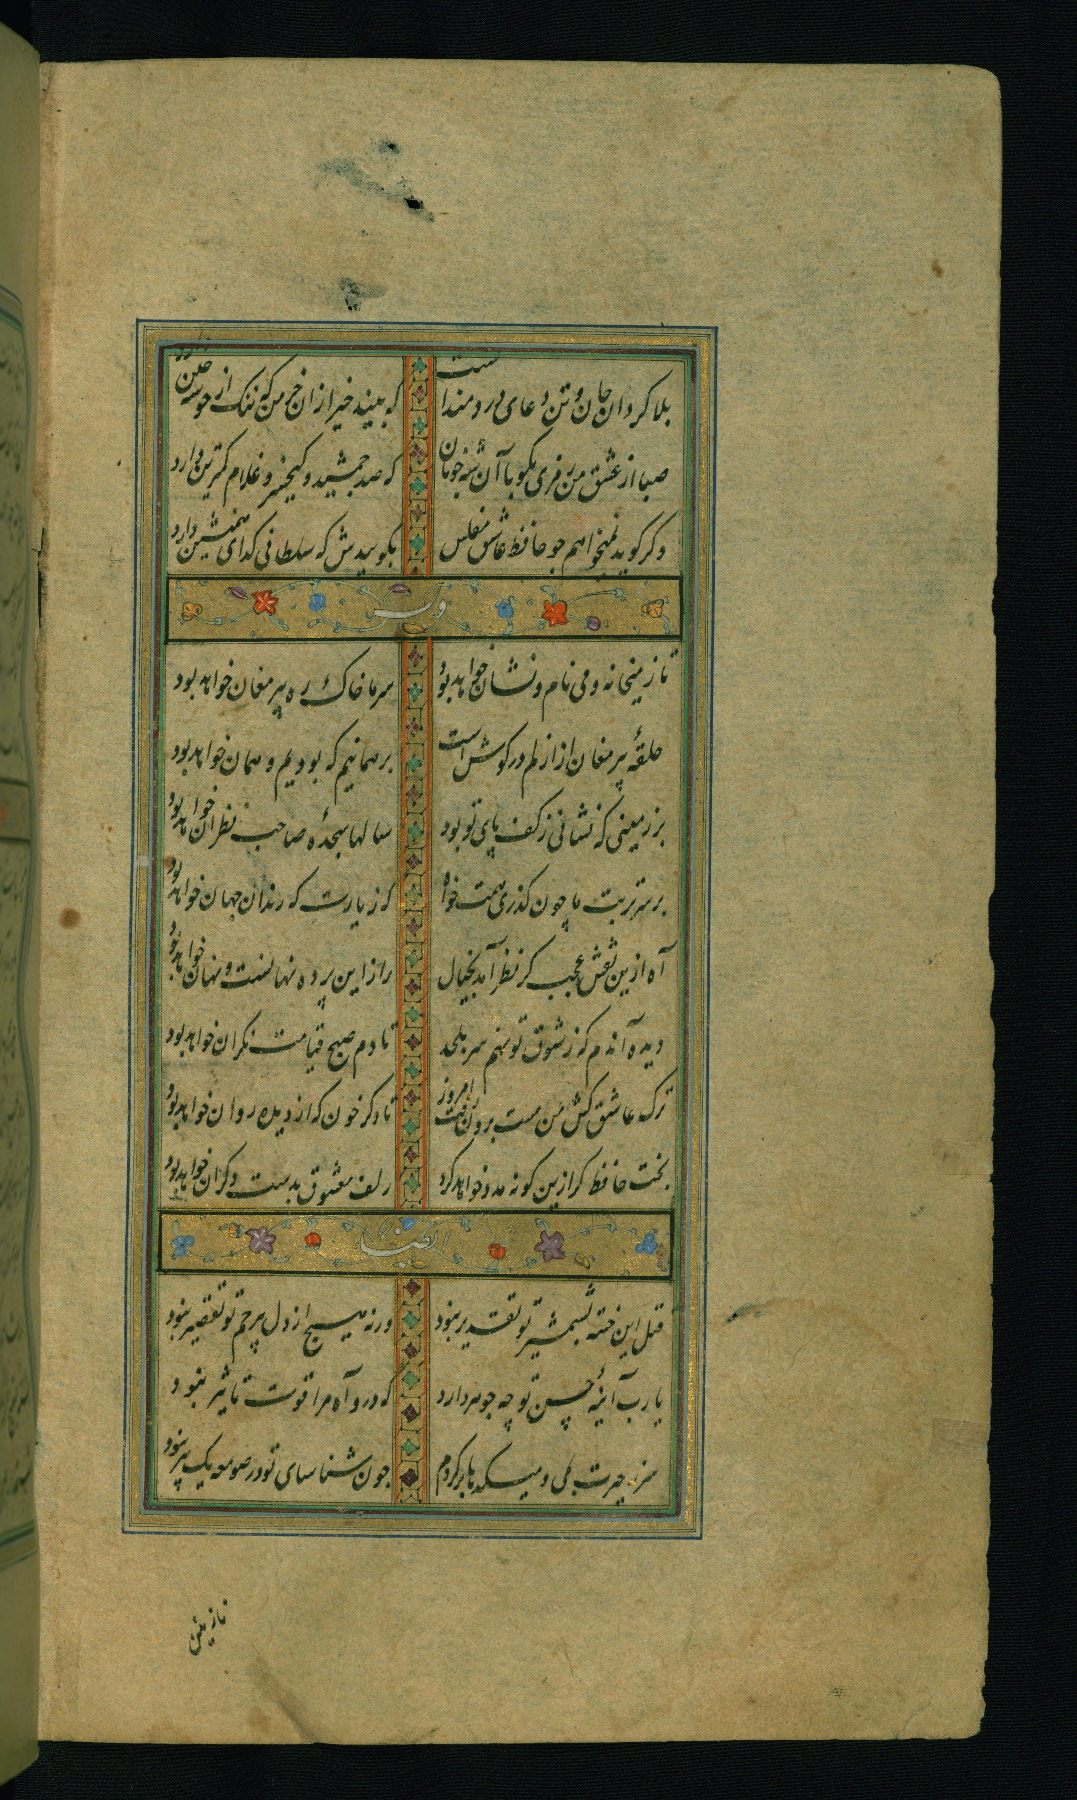 بلا کردان جان و تن دعای دردمندانست که بیند خیر از ان خرمن که ننک از خوشه چین دارد
صبا از عشق من رمزی بکو با آن شه خوبان که صد جمشید و کیخسرو غلام کمترین دارد
و کر کوید نمیخواهم جو حافظ عاشق مفلس بکوییدش که سلطانی کدای همنشین دارد
وله
تا ز میخانه و می نام و نشان خواهد بود سر ما خاک ره پیر مغان خواهد بود
حلقهٔ پیر مغان از ازلم در کوش است بر همانیم که بودیم و همان خواهد بود
بر زمینی که نشانی ز کف پای تو بود سالها سجدهٔ صاحب نظران خواهد بود
بر سر تربت ما چون کذری همت خواه که زیارت که رندان جهان خواهد بود
آه ازین نقش عجب کز نظر آمد بخیال راز این پرده نهانست و نهان خواهد بود
دیده آندم که ز شوق تو نهم سر بلحد تا دم صبح قیامت نکران خواهد بود
ترک عاشق کش من مست برون رفت امروز تا دکر خون که از دیده روان خواهد بود
بخت حافظ کر ازین کونه مدد خواهد کرد زلف معشوق بدست دکران خواهد بود
ایضا
قتل این خسته بشمشیر تو تقدیر نبود ورنه هیچ از دل بیرحم تو تقصیر نبود
یا رب آینهٔ حسن تو چه جوهر دارد که درو آه مرا قوت تاثیر نبود
سر ز حیرت بدر میکدها بر کردم جون شناسای تو در صومعه یک پیر نبود
نازنین